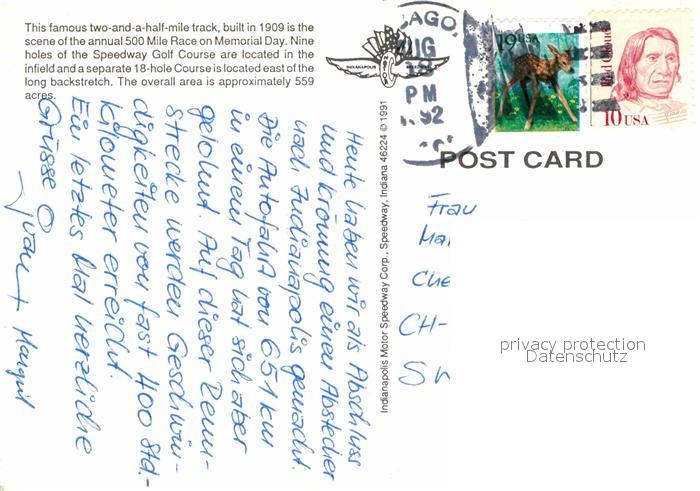 This famous two-and-a-half-mile track, built in 1909 is the
scene of the annual 500 Mile Race on Memorial Day. Nine
holes of the Speedway Golf Course are located in the
infield and a separate 18-hole Course is located east of the
long backstretch. The overall area is approximately 559
acres.
INDIANAPOLIS SPEEDWAY
AGO,
AUG
PM
1992
19 USA
Red Cloud
10 USA
POST CARD
Indianapolis Motor Speedway Corp., Speedway, Indiana 46224 © 1991
Heute haben wir als Abschluss
und Krönung einen Abstecher
nach Indianapolis gemacht.
Die Autofahrt von 651 km
in einem Tag hat sich aber
gelohnt. Auf dieser Renn-
strecke werden Geschwin-
digkeiten von fast 400 Std.-
kilometer erreicht.
Ein letztes Mal herzliche
Grüsse
Yvan + Margrit
Frau
Ma
Che
CH-
privacy protection
Datenschutz